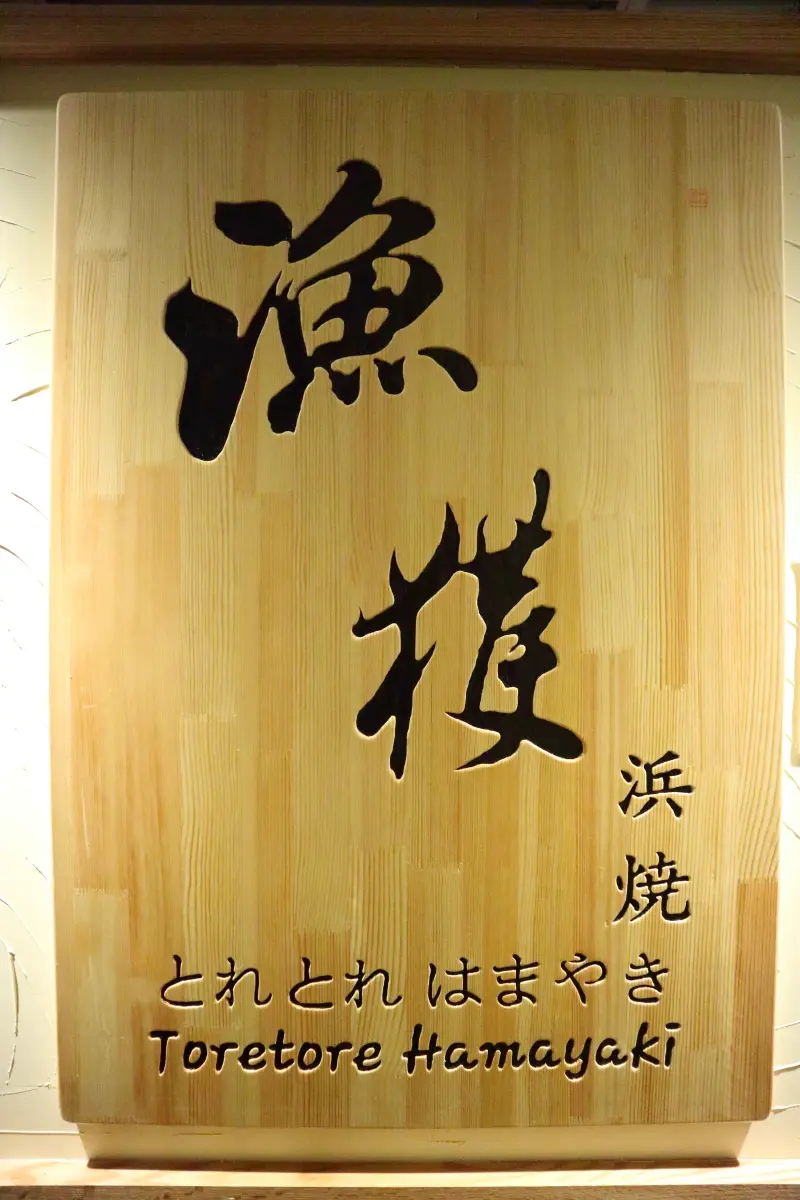 漁獲
浜焼
とれとれ はまやき
Toretore Hamayaki